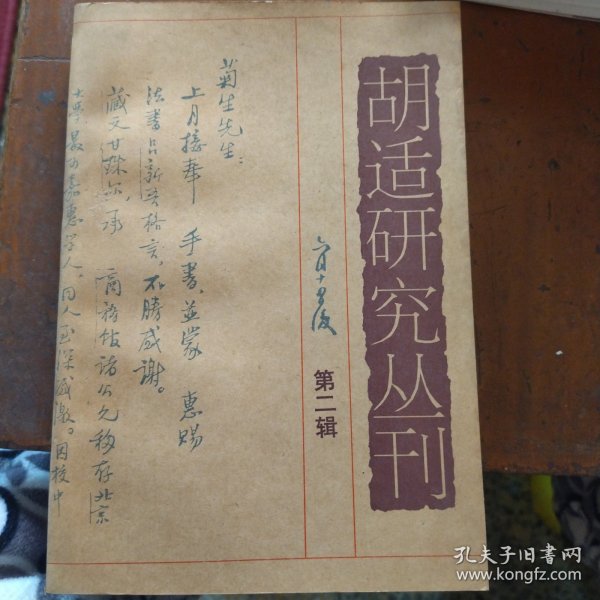 胡适研究丛刊
第二辑
菊生先生：
上月接奉 手书，并蒙 惠赐
法书吕新吾格言，不胜感谢。
藏文甘珠尔，承 商务馆诸公允移存北京
大学，最可嘉惠学人，同人至深感激。因校中
孔夫子旧书网
www.kongfz.com